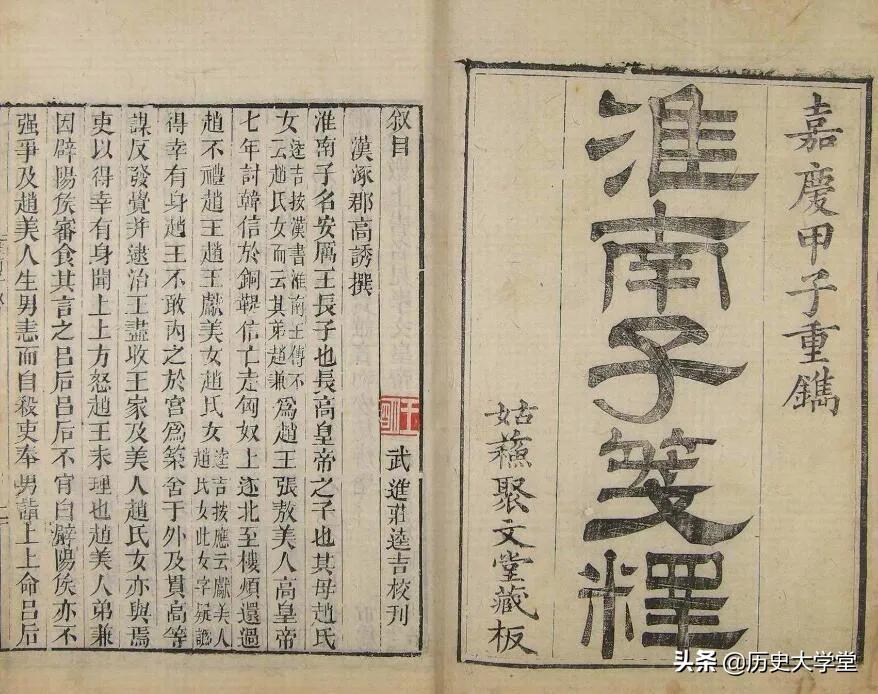 嘉慶甲子重鐫
淮南子箋釋
姑蘓聚文堂藏板
叙目 武進莊逵吉校刊
漢涿郡高誘撰
淮南子名安厲王長子也長高皇帝之子也其母趙氏
女逵吉按漢書淮南王傳不云趙氏女而云其弟趙兼為趙王張敖美人高皇帝
七年討韓信於銅鞮信亡走匈奴上遂北至樓煩還過
趙不禮趙王趙王獻美女趙氏女逵吉按應云獻美人趙氏女此女字疑譌
得幸有身趙王不敢內之於宮為築舍于外及貫高等
謀反發覺并逮治王盡收王家及美人趙氏女亦與焉
吏以得幸有身聞上上方怒趙王未理也趙美人弟兼
因辟陽侯審食其言之呂后呂后不肯白辟陽侯亦不
强爭及趙美人生男恚而自殺吏奉男詣上上命呂后
头条 @历史大学堂